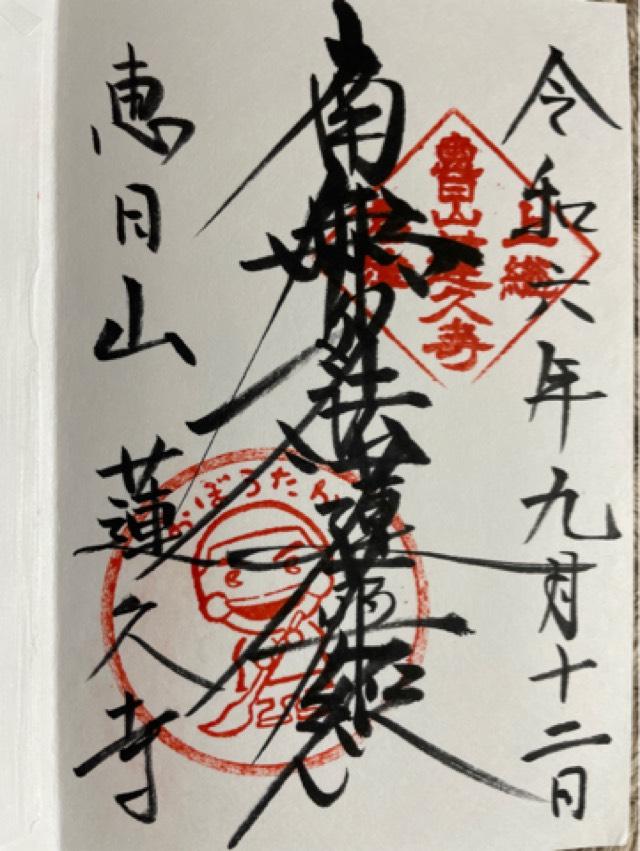 令和六年九月十二日
上総
恵日山蓮久寺
南無妙法蓮華経
おぼうたん
恵日山 蓮久寺